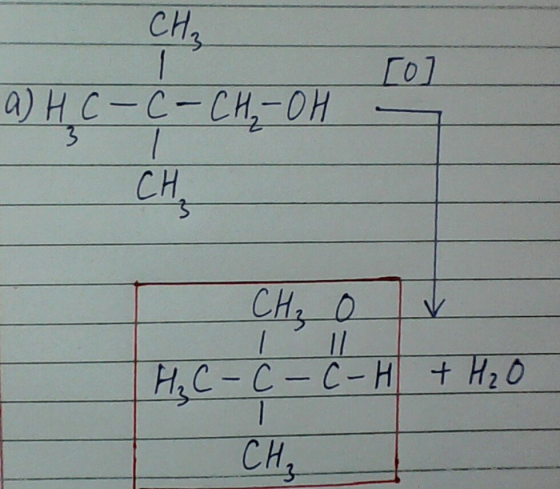 CH₃
|
[O]
a) H₃C – C – CH₂ – OH
|
CH₃
CH₃ O
| ||
H₃C – C – C – H + H₂O
|
CH₃